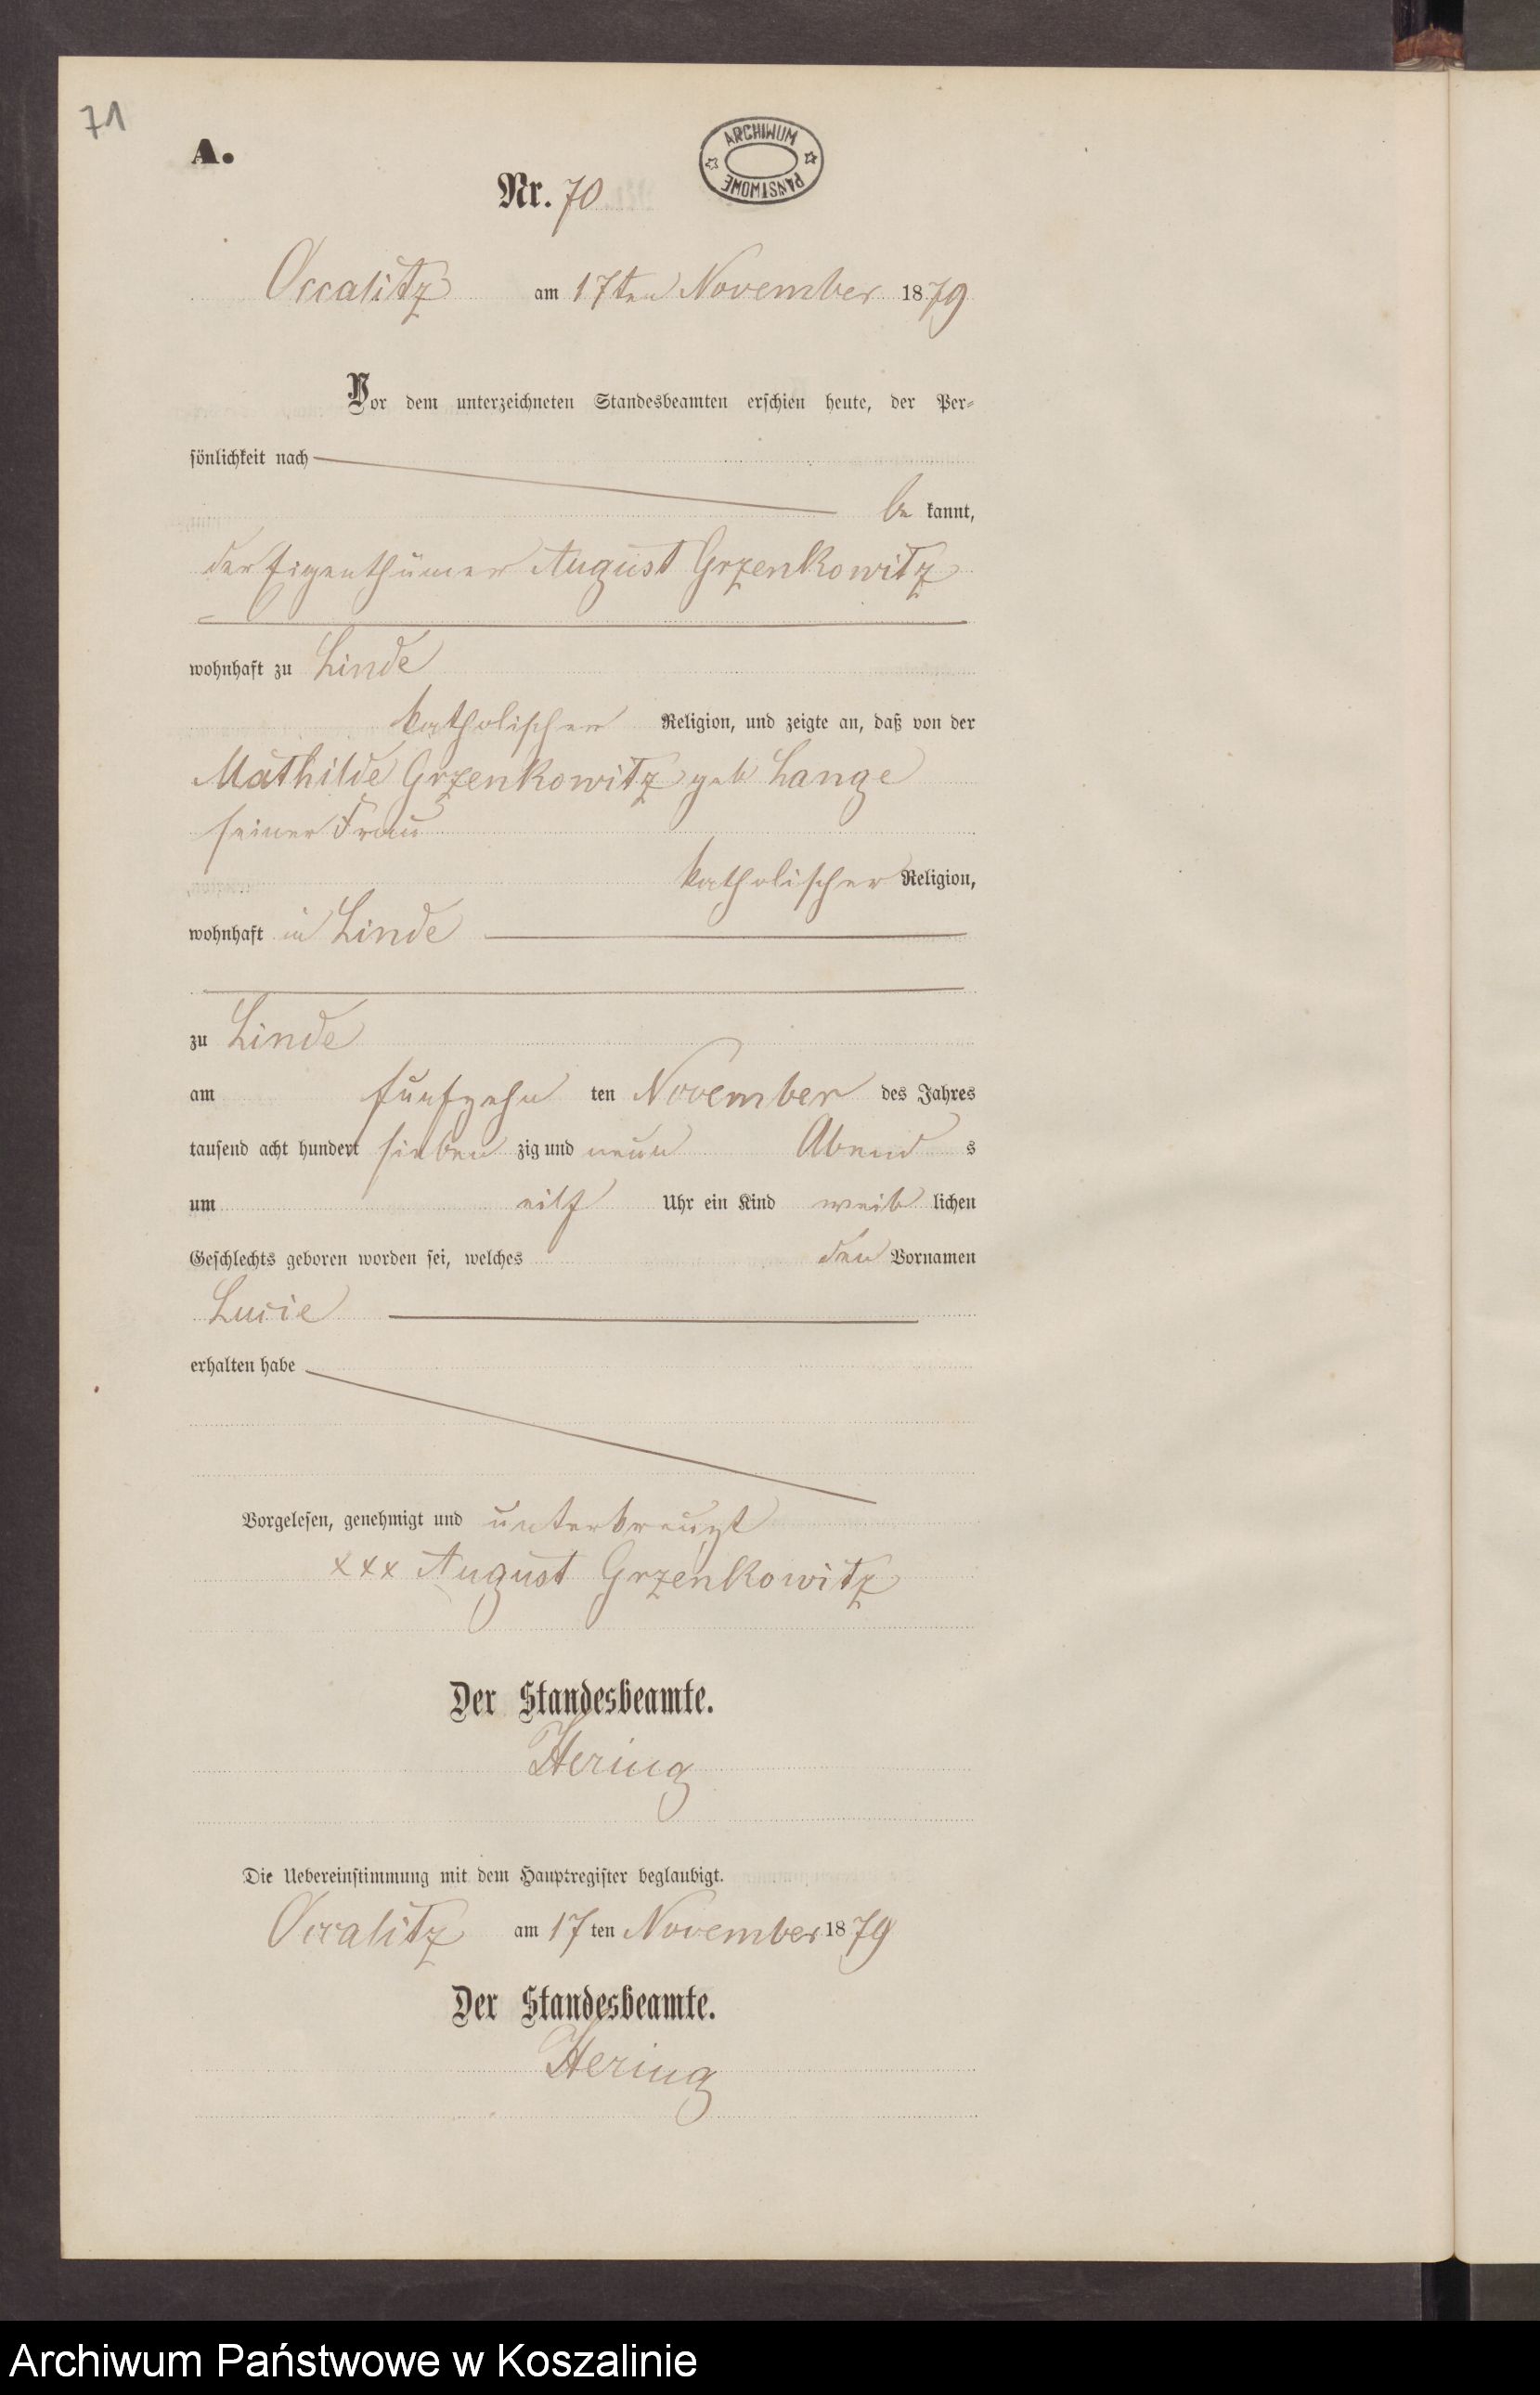 71
A.
ARCHIWUM PAŃSTWOWE
Nr. 70
Occalitz am 17ten November 1879
Vor dem unterzeichneten Standesbeamten erschien heute, der Per-
sönlichkeit nach
be kannt,
der Eigenthümer August Grzenkowitz
wohnhaft zu Linde
katholischer Religion, und zeigte an, daß von der
Mathilde Grzenkowitz geb Lange
seiner Frau
katholischer Religion,
wohnhaft in Linde
zu Linde
am fünfzehn ten November des Jahres
tausend acht hundert sieben zig und neun Abend s
um eilf Uhr ein Kind weib lichen
Geschlechts geboren worden sei, welches den Vornamen
Lucie
erhalten habe
Vorgelesen, genehmigt und unterkreuzt
xxx August Grzenkowitz
Der Standesbeamte.
Hering
Die Uebereinstimmung mit dem Hauptregister beglaubigt.
Occalitz am 17 ten November 1879
Der Standesbeamte.
Hering
Archiwum Państwowe w Koszalinie